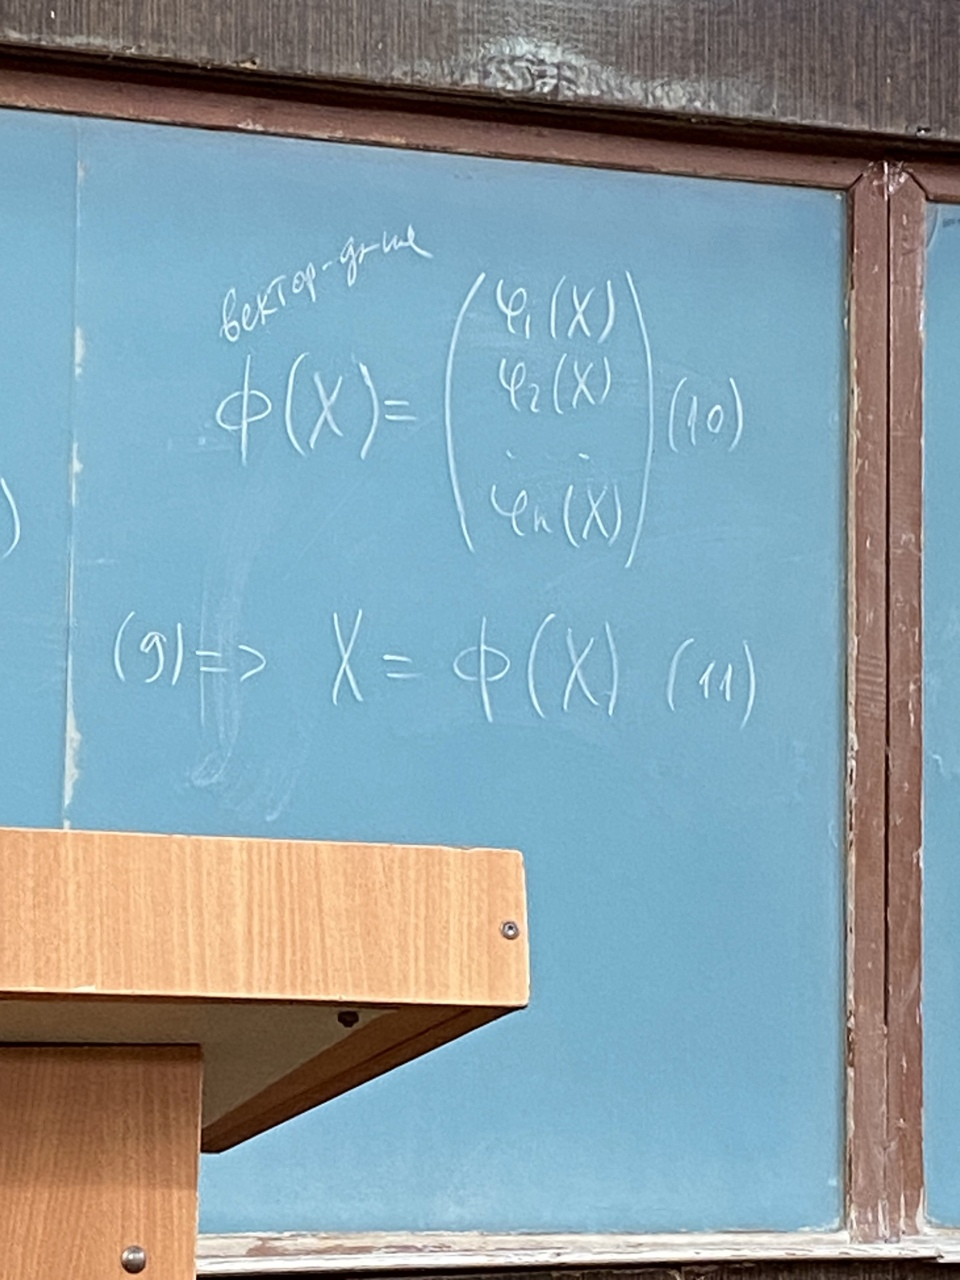 вектор-ф-ция
Ф(X) = (φ₁(X)
φ₂(X)
. .
φₙ(X)) (10)
(9) => X = Ф(X) (11)